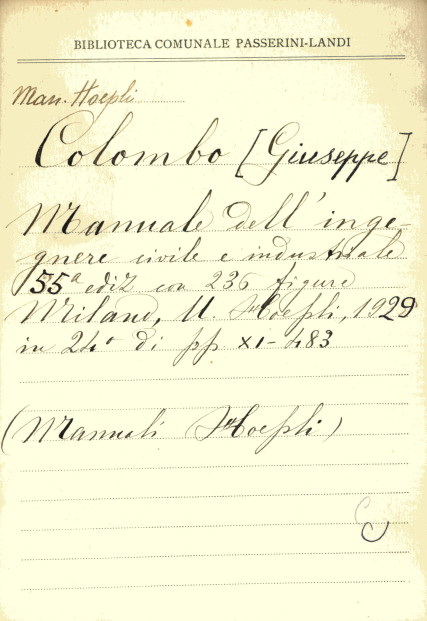 BIBLIOTECA COMUNALE PASSERINI-LANDI
Man. Hoepli
Colombo [Giuseppe]
Manuale dell'inge-
gnere civile e industriale
55ª ediz con 236 figure
Milano, U. Hoepli, 1929
in 24º di pp XI-483
(Manuali Hoepli)